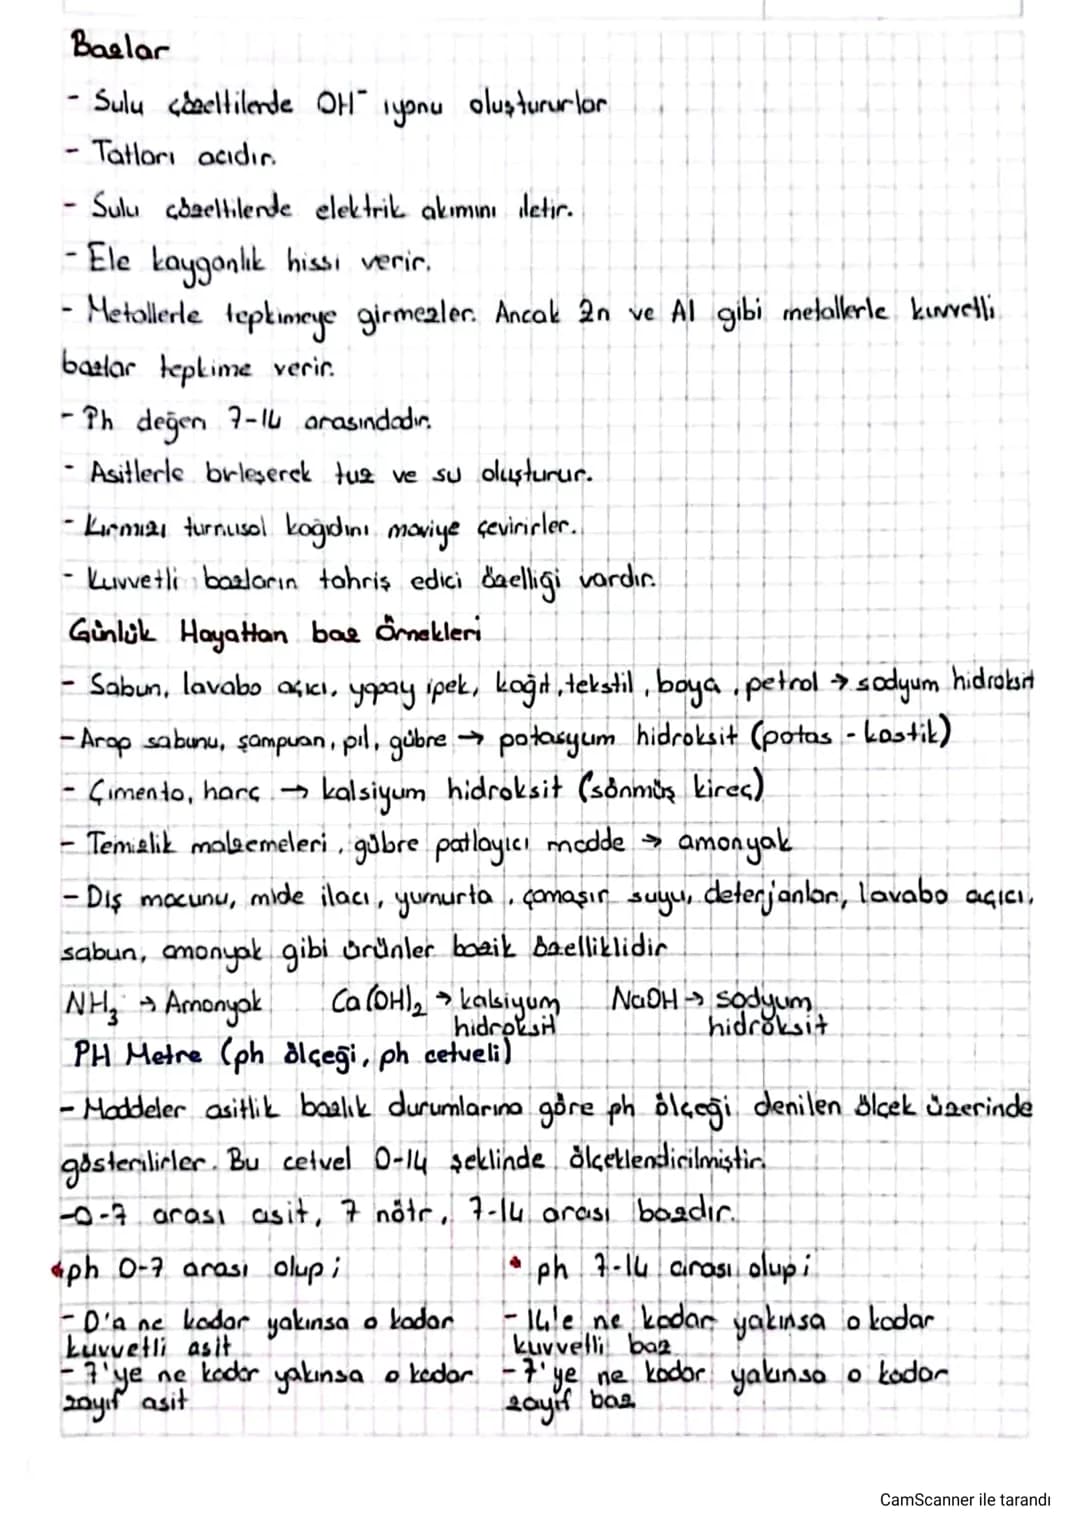 Bazlar
- Sulu çözeltilerde OH⁻ iyonu oluştururlar
- Tatları acıdır.
- Sulu çözeltilerde elektrik akımını iletir.
- Ele kayganlık hissi verir.
- Metallerle tepkimeye girmezler. Ancak Zn ve Al gibi metallerle kuvvetli
bazlar tepkime verir.
- Ph değeri 7-14 arasındadır.
- Asitlerle birleşerek tuz ve su oluşturur.
- Kırmızı turnusol kağıdını maviye çevirirler.
- Kuvvetli bazların tahriş edici özelliği vardır.
Günlük Hayattan baz Örnekleri
- Sabun, lavabo açıcı, yapay ipek, kağıt, tekstil, boya, petrol → sodyum hidroksit
- Arap sabunu, şampuan, pil, gübre → potasyum hidroksit (potas - kostik)
- Çimento, harç → kalsiyum hidroksit (sönmüş kireç)
- Temizlik malzemeleri, gübre patlayıcı madde → amonyak
- Diş macunu, mide ilacı, yumurta, çamaşır suyu, deterjanlar, lavabo açıcı,
sabun, amonyak gibi ürünler bazik özelliklidir
NH₃ → Amonyak Ca(OH)₂ → kalsiyum NaOH → sodyum
hidroksit hidroksit
PH Metre (ph ölçeği, ph cetveli)
- Maddeler asitlik bazlık durumlarına göre ph ölçeği denilen ölçek üzerinde
gösterilirler. Bu cetvel 0-14 şeklinde ölçeklendirilmiştir.
- 0-7 arası asit, 7 nötr, 7-14 arası bazdır.
• ph 0-7 arası olup;
- 0'a ne kadar yakınsa o kadar
kuvvetli asit
- 7'ye ne kadar yakınsa o kadar
zayıf asit
• ph 7-14 arası olup;
- 14'e ne kadar yakınsa o kadar
kuvvetli baz
- 7'ye ne kadar yakınsa o kadar
zayıf baz
CamScanner ile tarandı